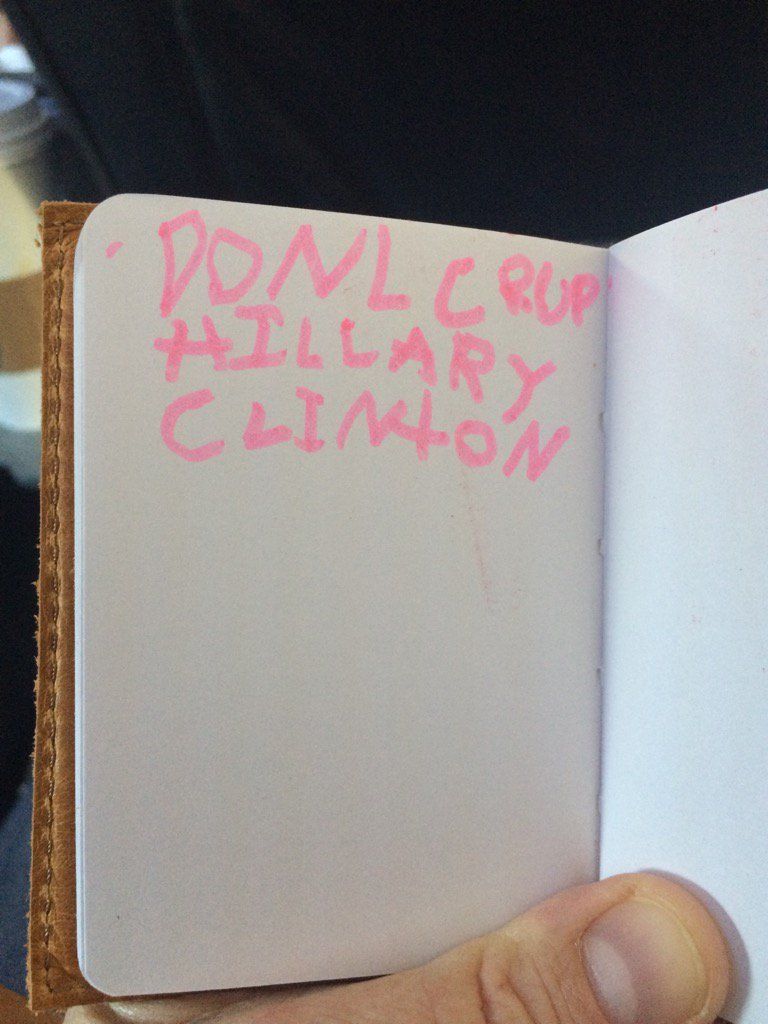 DONL CRUP
HILLARY
CLINTON